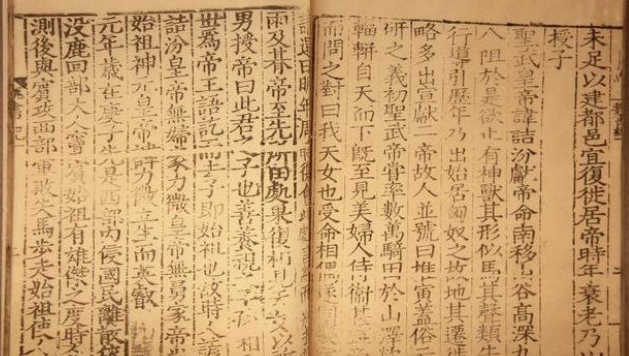 未足以建都邑宜復徙居帝時年衰老乃
授子
聖武皇帝諱詰汾獻帝命南移山谷高深九
八阻於是欲止有神獸其形似馬其聲類
行道引歷年乃出始居匈奴之故地其遷
略多出宣獻二帝故人並號曰推寅蓋俗
研之義初聖武帝嘗率數萬騎田於山澤
輜軿自天而下既至見美婦人侍衛甚
而問之對曰我天女也受命相偶
請還曰明年周時復
雨及朞帝至先所田處果復相見天女以
男授帝曰此君之子也善養視之子相
世為帝王語訖而去子即始祖也故時人諺
詰汾皇帝無婦家力微皇帝無舅家帝
始祖神元皇帝諱力微立生而英叡
元年歲在庚子先是西部內侵國民離散
沒鹿回部大人竇賓始祖有雄傑之度時
測後與賓攻西部軍敗失馬步走始祖使人